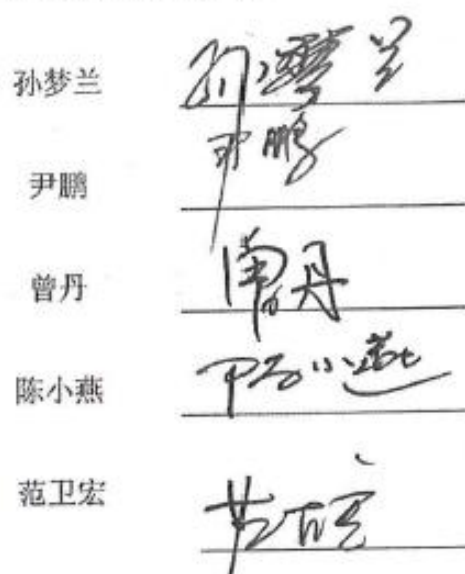 孙梦兰 孙梦兰
尹鹏 尹鹏
曾丹 曾丹
陈小燕 陈小燕
范卫宏 范卫宏